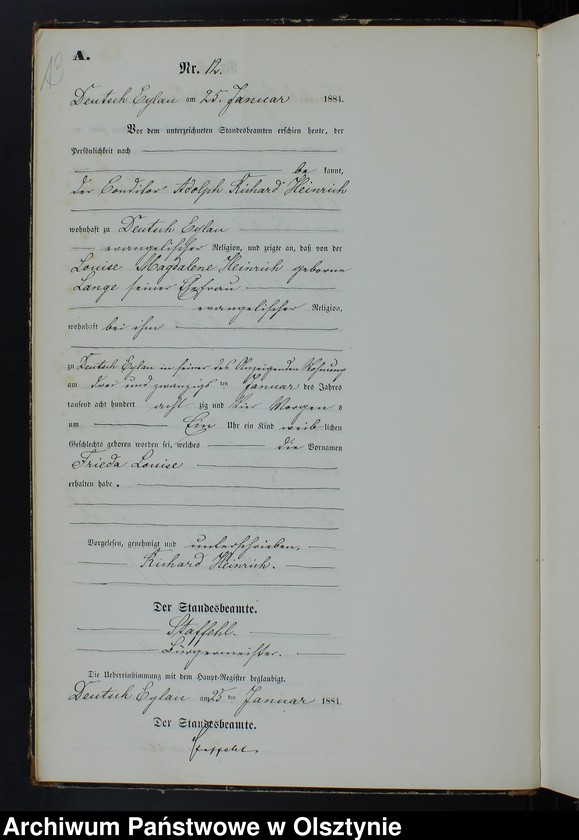 A.
13
Nr. 12.
Deutsch Eylau am 25. Januar 1884.
Vor dem unterzeichneten Standesbeamten erschien heute, der
Persönlichkeit nach
be kannt,
der Conditor Adolph Richard Heinrich
wohnhaft zu Deutsch Eylau
evangelischer Religion, und zeigte an, daß von der
Louise Magdalene Heinrich geborne
Lange seiner Ehefrau
evangelischer Religion,
wohnhaft bei ihm
zu Deutsch Eylau in seiner des Anzeigenden Wohnung
am drei und zwanzigs ten Januar des Jahres
tausend acht hundert acht zig und vier Morgen s
um Ein Uhr ein Kind weib lichen
Geschlechts geboren worden sei, welches die Vornamen
Frieda Louise
erhalten habe.
Vorgelesen, genehmigt und unterschrieben.
Richard Heinrich.
Der Standesbeamte.
Staffehl.
Bürgermeister.
Die Uebereinstimmung mit dem Haupt-Register beglaubigt.
Deutsch Eylau am 25 ten Januar 1884
Der Standesbeamte.
Staffehl
Archiwum Państwowe w Olsztynie